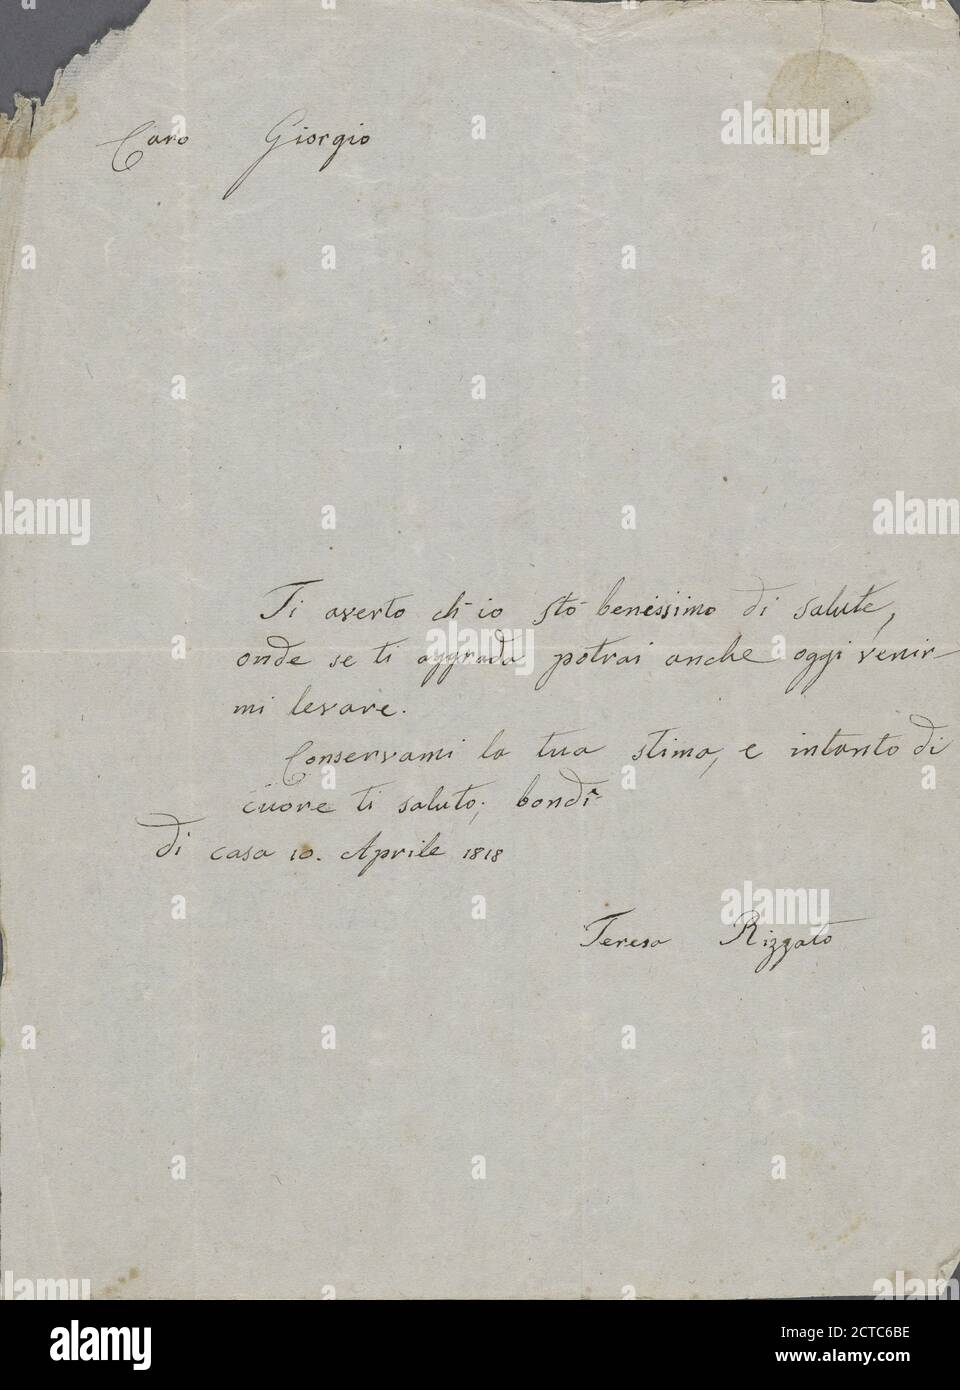 Caro Giorgio
Ti averto ch' io stò benissimo di salute,
onde se ti aggrada potrai anche oggi venir-
mi levare.
Conservami la tua stima, e intanto di
cuore ti saluto; bondì
di casa 10. Aprile 1818
Teresa Rizzato
alamy
Image ID: 2CTC6BE
www.alamy.com